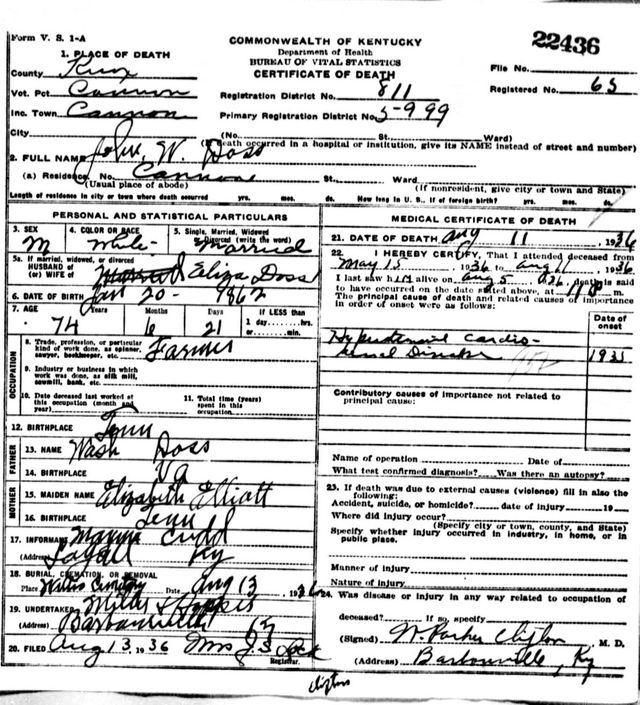 Form V. S. 1-A
COMMONWEALTH OF KENTUCKY
Department of Health
BUREAU OF VITAL STATISTICS
CERTIFICATE OF DEATH
22436
File No.
Registered No. 65
1. PLACE OF DEATH
County Knox
Vot. Pct. Cannon
Inc. Town Cannon
City
Registration District No. 811
Primary Registration District No. 5-9999
(No. St. Ward)
(If death occurred in a hospital or institution, give its NAME instead of street and number)
2. FULL NAME John W. Doss
(a) Residence. No. Cannon St. Ward
(Usual place of abode) (If nonresident, give city or town and State)
Length of residence in city or town where death occurred yrs. mos. ds. How long in U. S., if of foreign birth? yrs. mos. ds.
PERSONAL AND STATISTICAL PARTICULARS
3. SEX M
4. COLOR OR RACE White
5. Single, Married, Widowed or Divorced (write the word) Married
5a. If married, widowed, or divorced
HUSBAND of (or) WIFE of Eliza Doss
6. DATE OF BIRTH Jan 20- 1862
7. AGE 74 Years 6 Months 21 Days If LESS than 1 day,....hrs. or....min.
OCCUPATION
8. Trade, profession, or particular kind of work done, as spinner, sawyer, bookkeeper, etc. Farmer
9. Industry or business in which work was done, as silk mill, sawmill, bank, etc.
10. Date deceased last worked at this occupation (month and year)
11. Total time (years) spent in this occupation
12. BIRTHPLACE Tenn
FATHER
13. NAME Wash Doss
14. BIRTHPLACE Va
MOTHER
15. MAIDEN NAME Elizabeth Elliott
16. BIRTHPLACE Tenn
17. INFORMANT Cudd
(Address) Ky
18. BURIAL, CREMATION, OR REMOVAL
Place Cemetery Date Aug 13, 1936
19. UNDERTAKER
(Address) Barbourville Ky
20. FILED Aug 13 1936 Mrs J. S.
Registrar.
MEDICAL CERTIFICATE OF DEATH
21. DATE OF DEATH Aug 11 1936
22. I HEREBY CERTIFY, That I attended deceased from
May 15, 1936 to Aug 11, 1936
I last saw him alive on Aug 5 1936, death is said
to have occurred on the date stated above, at m.
The principal cause of death and related causes of importance
in order of onset were as follows:
Date of onset
Hypertensive Cardio-
renal Disease 1935
Contributory causes of importance not related to
principal cause:
Name of operation Date of
What test confirmed diagnosis? Was there an autopsy?
23. If death was due to external causes (violence) fill in also the
following:
Accident, suicide, or homicide? date of injury 19
Where did injury occur?
(Specify city or town, county, and State)
Specify whether injury occurred in industry, in home, or in
public place.
Manner of injury
Nature of injury
24. Was disease or injury in any way related to occupation of
deceased? If so, specify
(Signed) W. Parker Clifton M. D.
(Address) Barbourville, Ky